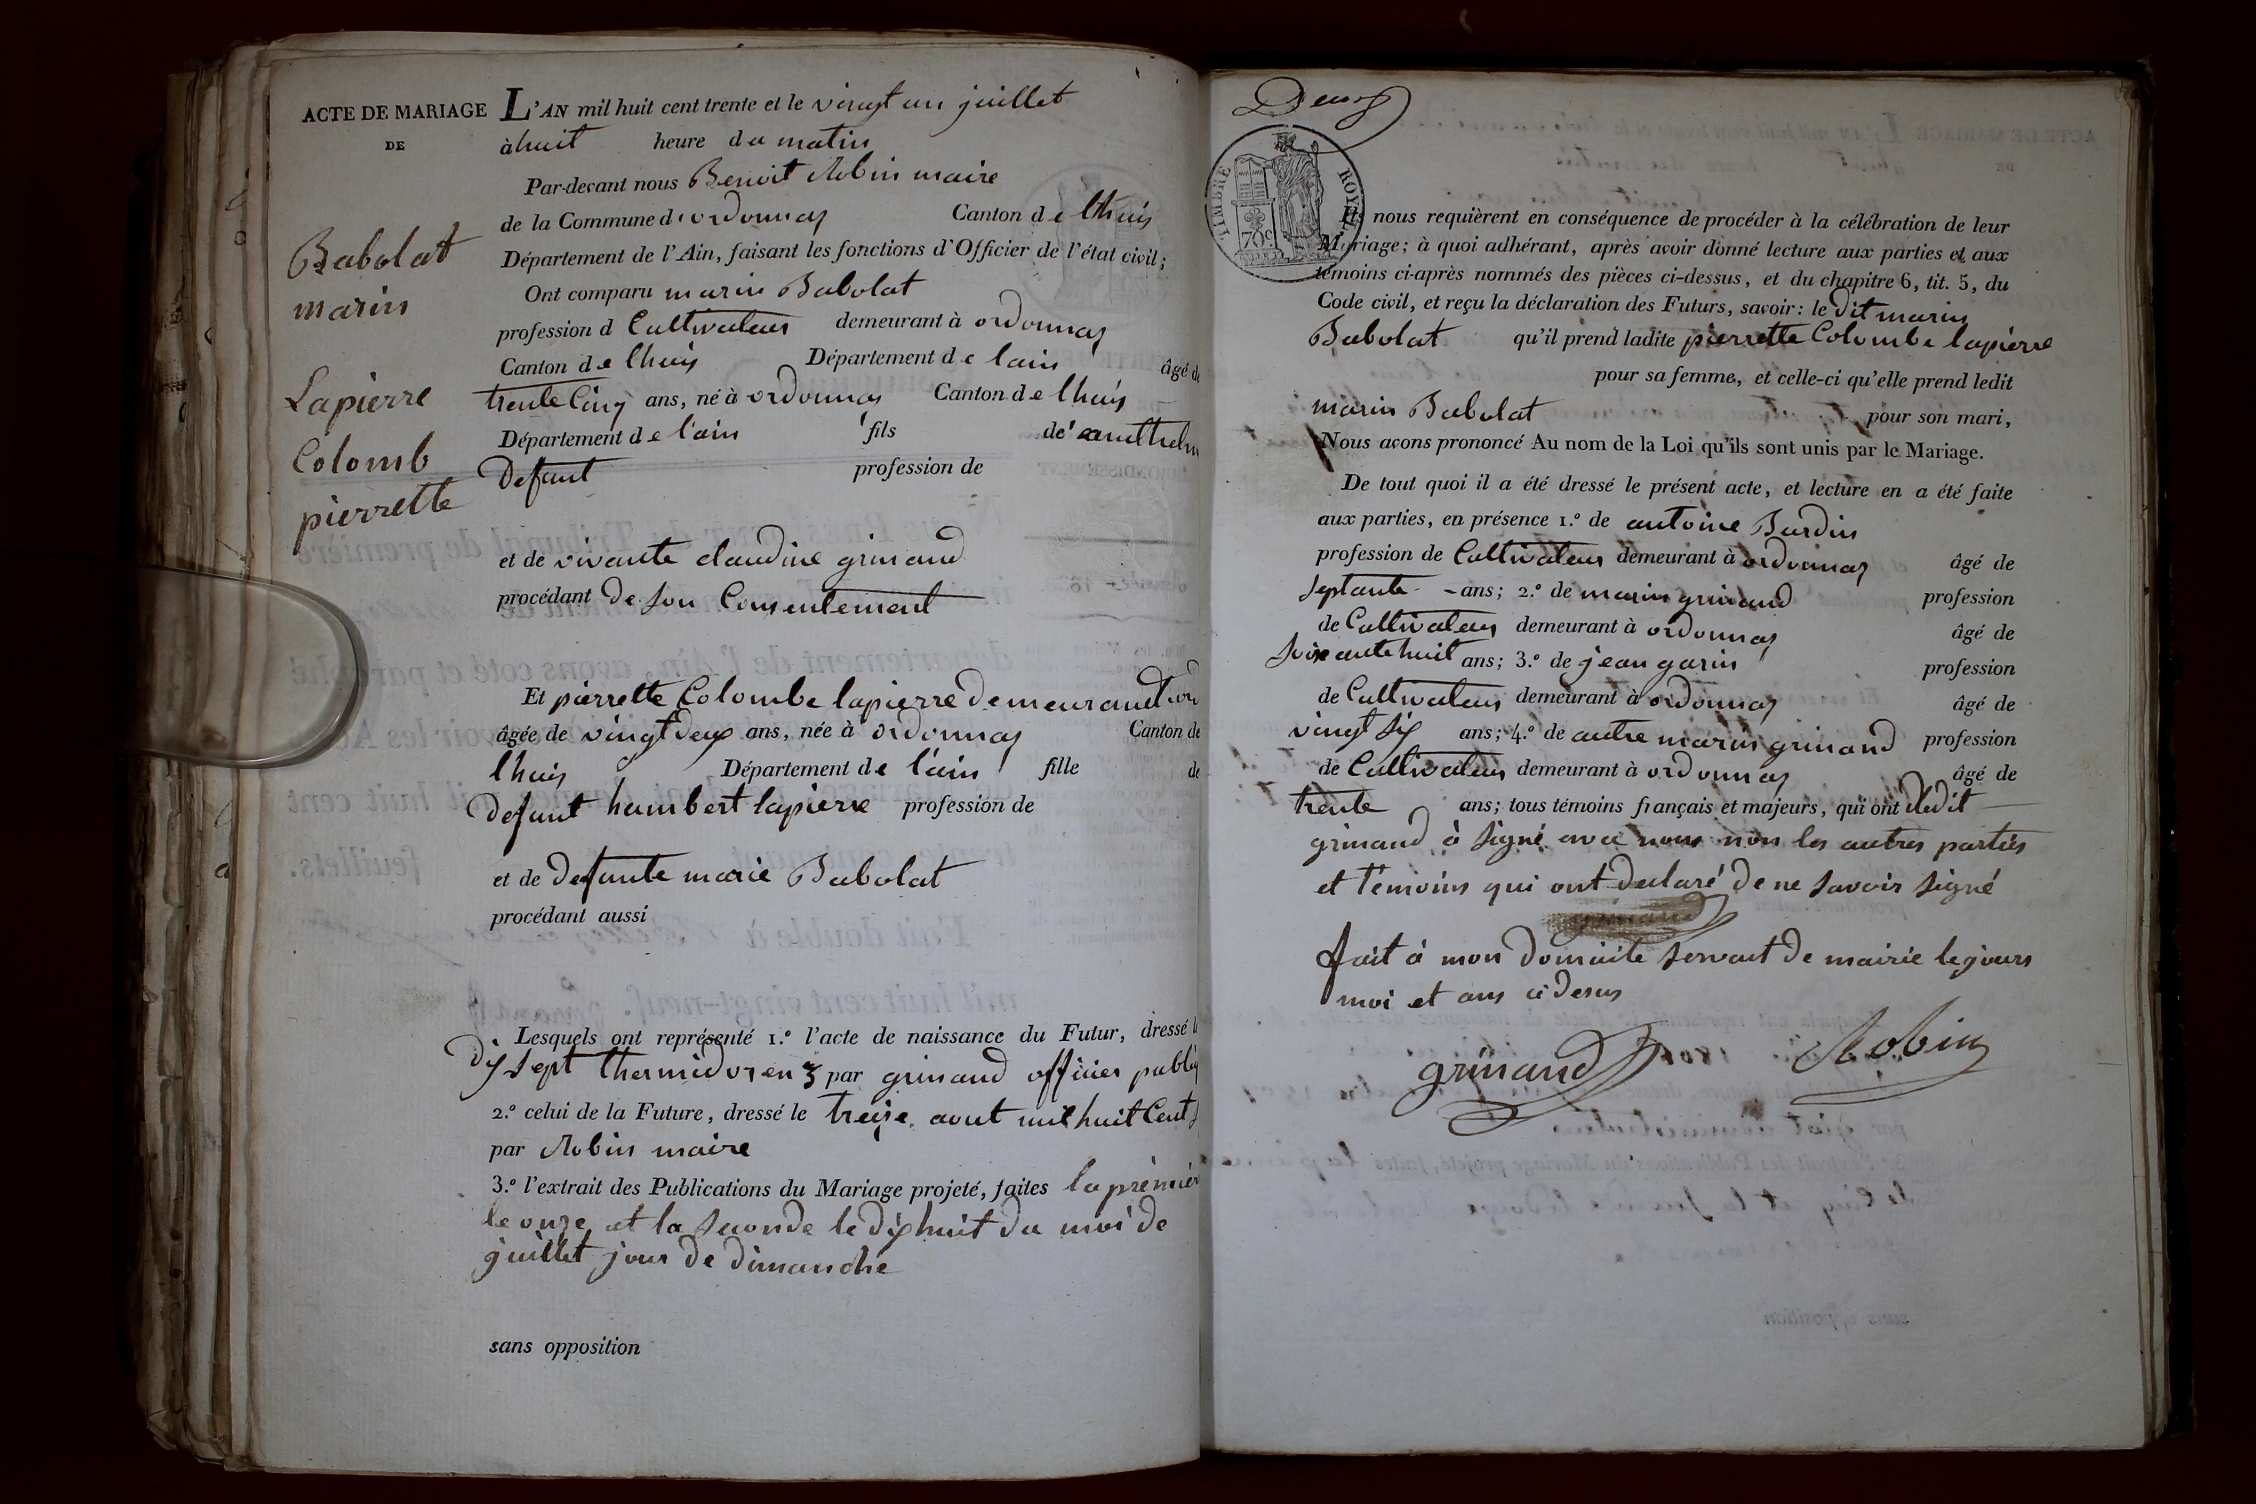 ACTE DE MARIAGE
DE
Babolat
marin
Lapierre
Colomb
pierrette
L'AN mil huit cent trente et le vingt un juillet
à huit heure du matin
Par-devant nous Benoit Robin maire
de la Commune d'ordonnas Canton de lhuis
Département de l'Ain, faisant les fonctions d'Officier de l'état civil;
Ont comparu marin Babolat
profession d Cultivateur demeurant à ordonnas
Canton de lhuis Département de lain âgé de
trente Cinq ans, né à ordonnas Canton de lhuis
Département de l'ain fils de
Defunt profession de
et de vivante claudine grinand
procédant de son Consentement
Et pierrette Colombe lapierre demeurant
âgée de vingt deux ans, née à ordonnas Canton de
lhuis Département de l'ain fille de
defunt humbert lapierre profession de
et de defunte marie Babolat
procédant aussi
Lesquels ont représenté 1.º l'acte de naissance du Futur, dressé
dix sept thermidor en 3 par grinand officier public
2.º celui de la Future, dressé le treize aout mil huit Cent
par Robin maire
3.º l'extrait des Publications du Mariage projeté, faites la premier
le onze et la seconde le dix huit du moi de
juillet jour de dimanche
sans opposition
Deux
TIMBRE ROYAL
70 c
Ils nous requièrent en conséquence de procéder à la célébration de leur
Mariage; à quoi adhérant, après avoir donné lecture aux parties et aux
témoins ci-après nommés des pièces ci-dessus, et du chapitre 6, tit. 5, du
Code civil, et reçu la déclaration des Futurs, savoir: le dit marin
Babolat qu'il prend ladite pierrette Colombe lapierre
pour sa femme, et celle-ci qu'elle prend ledit
marin Babolat pour son mari,
Nous avons prononcé Au nom de la Loi qu'ils sont unis par le Mariage.
De tout quoi il a été dressé le présent acte, et lecture en a été faite
aux parties, en présence 1.º de antoine Burdin
profession de Cultivateur demeurant à ordonnas âgé de
septante ans; 2.º de marin grinand profession
de Cultivateur demeurant à ordonnas âgé de
soixante huit ans; 3.º de jean garin profession
de Cultivateur demeurant à ordonnas âgé de
vingt six ans; 4.º de autre marin grinand profession
de Cultivateur demeurant à ordonnas âgé de
trente ans; tous témoins français et majeurs, qui ont ledit
grinand à signé avec nous non les autres parties
et témoins qui ont declaré de ne savoir signé
fait à mon domicile servant de mairie le jours
moi et ans ci desus
grinand Robin